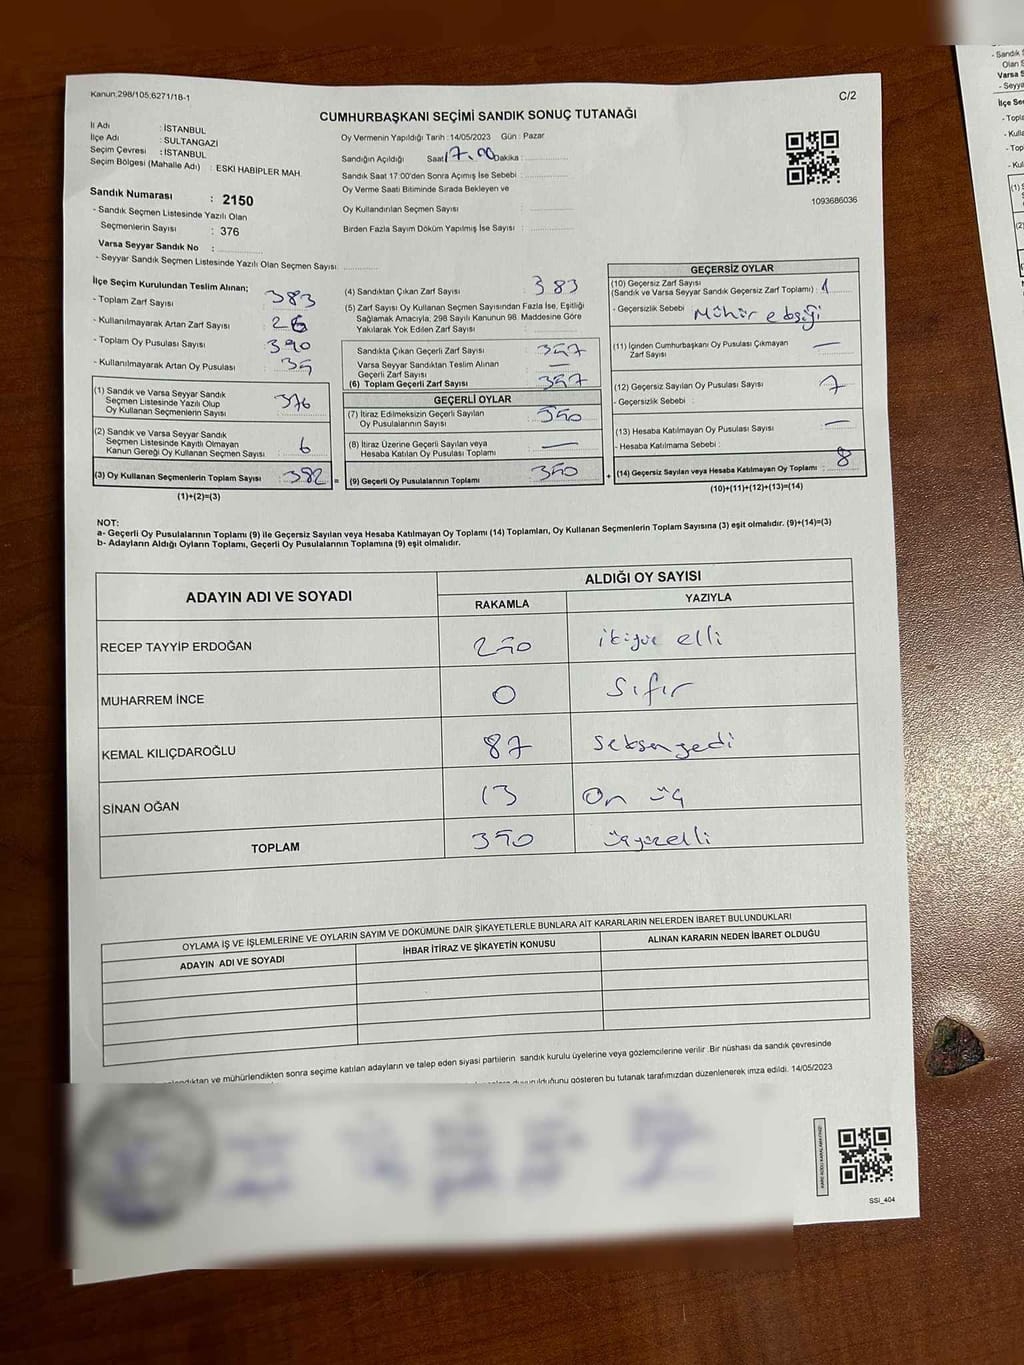 Kanun:298/105,6271/18-1
C/2
CUMHURBAŞKANI SEÇİMİ SANDIK SONUÇ TUTANAĞI
İl Adı : İSTANBUL
İlçe Adı : SULTANGAZİ
Seçim Çevresi : İSTANBUL
Seçim Bölgesi (Mahalle Adı) : ESKİ HABİPLER MAH.
Sandık Numarası : 2150
- Sandık Seçmen Listesinde Yazılı Olan
Seçmenlerin Sayısı : 376
Varsa Seyyar Sandık No :
- Seyyar Sandık Seçmen Listesinde Yazılı Olan Seçmen Sayısı:
Oy Vermenin Yapıldığı Tarih :14/05/2023 Gün : Pazar
Sandığın Açıldığı Saat 17.00 Dakika :
Sandık Saat 17:00'den Sonra Açımış İse Sebebi :
Oy Verme Saati Bitiminde Sırada Bekleyen ve
Oy Kullandırılan Seçmen Sayısı :
Birden Fazla Sayım Döküm Yapılmış İse Sayısı :
1093686036
İlçe Seçim Kurulundan Teslim Alınan;
- Toplam Zarf Sayısı : 383
- Kullanılmayarak Artan Zarf Sayısı : 26
- Toplam Oy Pusulası Sayısı : 390
- Kullanılmayarak Artan Oy Pusulası : 35
(1) Sandık ve Varsa Seyyar Sandık
Seçmen Listesinde Yazılı Olup
Oy Kullanan Seçmenlerin Sayısı : 376
(2) Sandık ve Varsa Seyyar Sandık
Seçmen Listesinde Kayıtlı Olmayan
Kanun Gereği Oy Kullanan Seçmen Sayısı : 6
(3) Oy Kullanan Seçmenlerin Toplam Sayısı : 382 =
(1)+(2)=(3)
(4) Sandıktan Çıkan Zarf Sayısı : 383
(5) Zarf Sayısı Oy Kullanan Seçmen Sayısından Fazla İse, Eşitliği
Sağlamak Amacıyla; 298 Sayılı Kanunun 98. Maddesine Göre
Yakılarak Yok Edilen Zarf Sayısı :
Sandıkta Çıkan Geçerli Zarf Sayısı : 357
Varsa Seyyar Sandıktan Teslim Alınan
Geçerli Zarf Sayısı : —
(6) Toplam Geçerli Zarf Sayısı : 357
GEÇERLİ OYLAR
(7) İtiraz Edilmeksizin Geçerli Sayılan
Oy Pusulalarının Sayısı : 350
(8) İtiraz Üzerine Geçerli Sayılan veya
Hesaba Katılan Oy Pusulası Toplamı : —
(9) Geçerli Oy Pusulalarının Toplamı : 350 +
GEÇERSİZ OYLAR
(10) Geçersiz Zarf Sayısı
(Sandık ve Varsa Seyyar Sandık Geçersiz Zarf Toplamı) : 1
- Geçersizlik Sebebi : Mühür eksiği
(11) İçinden Cumhurbaşkanı Oy Pusulası Çıkmayan
Zarf Sayısı : —
(12) Geçersiz Sayılan Oy Pusulası Sayısı : 7
- Geçersizlik Sebebi :
(13) Hesaba Katılmayan Oy Pusulası Sayısı : —
- Hesaba Katılmama Sebebi :
(14) Geçersiz Sayılan veya Hesaba Katılmayan Oy Toplamı : 8
(10)+(11)+(12)+(13)=(14)
NOT:
a- Geçerli Oy Pusulalarının Toplamı (9) ile Geçersiz Sayılan veya Hesaba Katılmayan Oy Toplamı (14) Toplamları, Oy Kullanan Seçmenlerin Toplam Sayısına (3) eşit olmalıdır. (9)+(14)=(3)
b- Adayların Aldığı Oyların Toplamı, Geçerli Oy Pusulalarının Toplamına (9) eşit olmalıdır.
ADAYIN ADI VE SOYADI
ALDIĞI OY SAYISI
RAKAMLA YAZIYLA
RECEP TAYYİP ERDOĞAN 250 ikiyüz elli
MUHARREM İNCE 0 Sıfır
KEMAL KILIÇDAROĞLU 87 Seksen yedi
SİNAN OĞAN 13 On üç
TOPLAM 350 üçyüzelli
OYLAMA İŞ VE İŞLEMLERİNE VE OYLARIN SAYIM VE DÖKÜMÜNE DAİR ŞİKAYETLERLE BUNLARA AİT KARARLARIN NELERDEN İBARET BULUNDUKLARI
ADAYIN ADI VE SOYADI İHBAR İTİRAZ VE ŞİKAYETİN KONUSU ALINAN KARARIN NEDEN İBARET OLDUĞU
ve mühürlendikten sonra seçime katılan adayların ve talep eden siyasi partilerin sandık kurulu üyelerine veya gözlemcilerine verilir .Bir nüshası da sandık çevresinde
gösteren bu tutanak tarafımızdan düzenlenerek imza edildi. 14/05/2023
SSİ_404